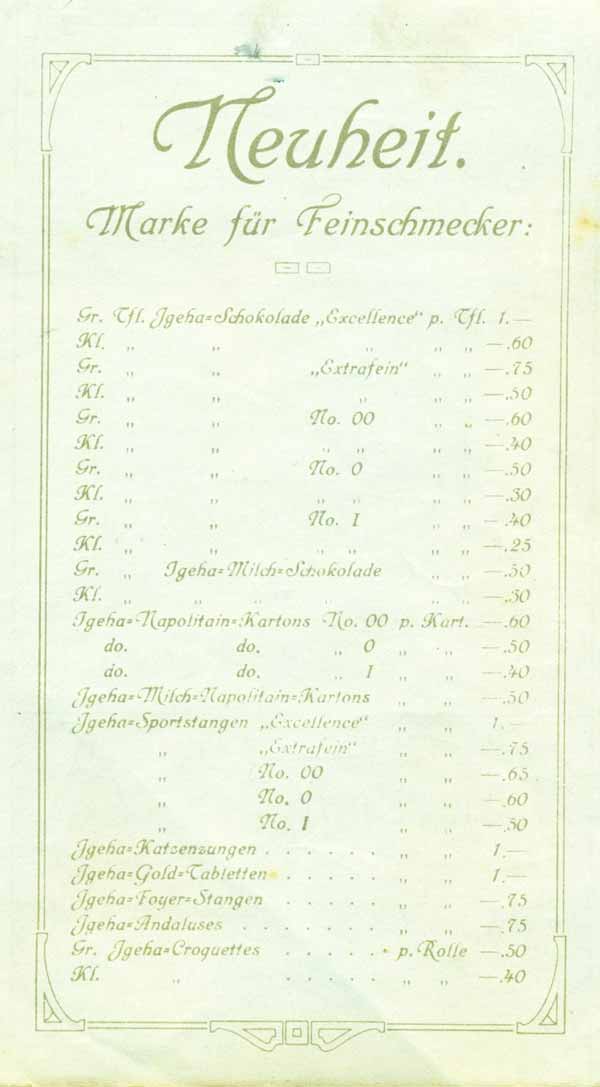 Neuheit.
Marke für Feinschmecker:
Gr. Tfl. Igeha=Schokolade „Excellence“ p. Tfl. 1.—
Kl. „ „ „ „ „ —.60
Gr. „ „ „Extrafein“ „ „ —.75
Kl. „ „ „ „ „ —.50
Gr. „ „ No. 00 „ „ —.60
Kl. „ „ „ „ „ „ —.40
Gr. „ „ No. 0 „ „ —.50
Kl. „ „ „ „ „ „ —.30
Gr. „ „ No. I „ „ —.40
Kl. „ „ „ „ „ „ —.25
Gr. „ Igeha=Milch=Schokolade „ „ —.50
Kl. „ „ „ „ „ „ —.30
Igeha=Napolitain=Kartons No. 00 p. Kart. —.60
do. do. „ 0 „ „ —.50
do. do. „ I „ „ —.40
Igeha=Milch=Napolitain=Kartons „ „ —.50
Igeha=Sportstangen „Excellence“ „ „ 1.—
„ „Extrafein“ „ „ —.75
„ No. 00 „ „ —.65
„ No. 0 „ „ —.60
„ No. I „ „ —.50
Igeha=Katzenzungen . . . . . . „ „ 1.—
Igeha=Gold=Tabletten . . . . . „ „ 1.—
Igeha=Foyer=Stangen . . . . . „ „ —.75
Igeha=Andaluses . . . . . . . „ „ —.75
Gr. Igeha=Croquettes . . . . . p. Rolle —.50
Kl. „ . . . . . „ „ —.40